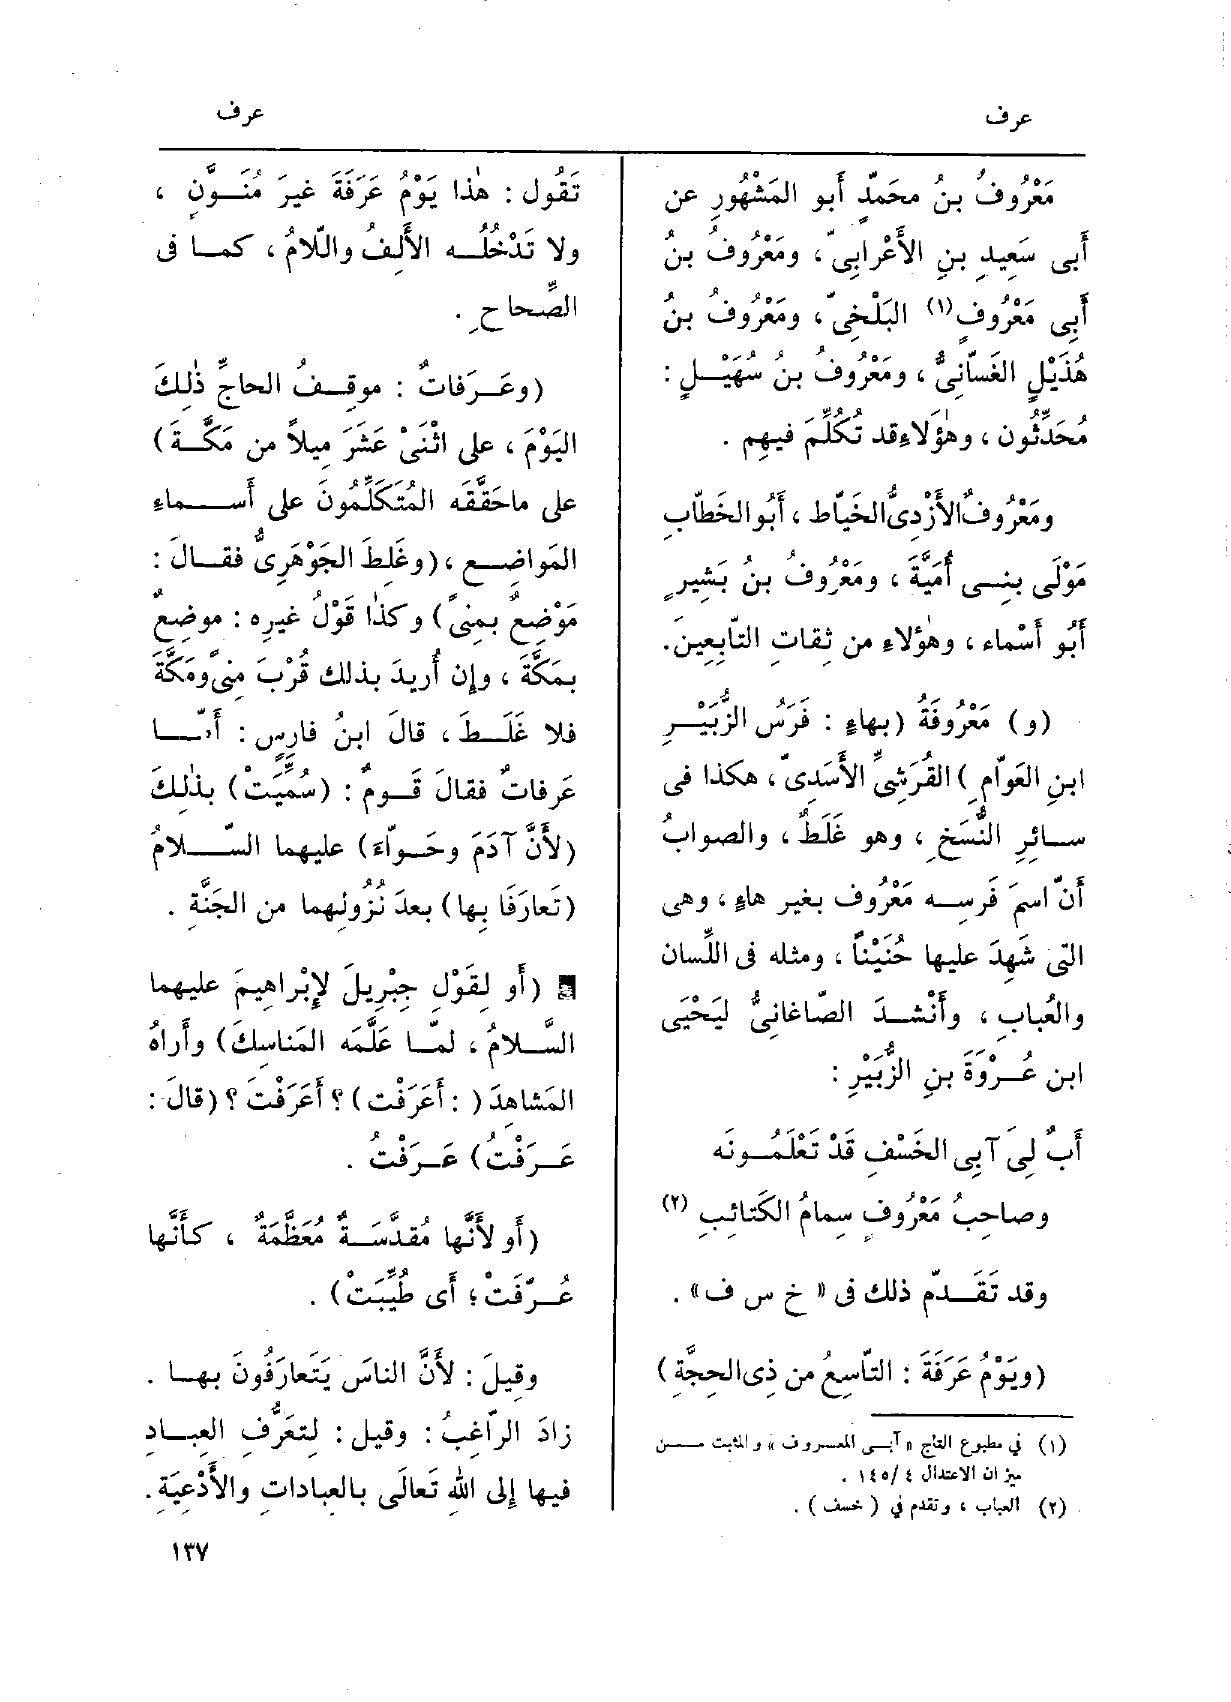 عرف
عرف
مَعْرُوفُ بنُ محمدٍّ أَبو المَشْهُورِ عن
أَبى سَعِيدِ بنِ الأَعْرابِىّ ، ومَعْرُوفُ بنُ
أَبِى مَعْرُوفٍ (١) البَلْخِىّ ، ومَعْرُوفُ بنُ
هُذَيْلٍ الغَسّانِىُّ ، ومَعْرُوفُ بنُ سُهَيْلٍ :
مُحَدِّثُون ، وهٰؤلاءِ قد تُكُلِّمَ فيهِم .
ومَعْرُوفٌ الأَزْدِىُّ الخَيّاط ، أَبُو الخَطّابِ
مَوْلَى بنِى أُمَيَّةَ ، ومَعْرُوفُ بنُ بَشِيرٍ
أَبُو أَسْماء ، وهٰؤلاءِ من ثِقاتِ التّابِعِينَ .
(و) مَعْرُوفَةُ (بهاءٍ : فَرَسُ الزُّبَيْرِ
ابنِ العَوّامِ ) القُرَشِىِّ الأَسَدِىّ ، هكذا فى
سائِرِ النُّسَخِ ، وهو غَلَطٌ ، والصوابُ
أَنّ اسمَ فَرسِه مَعْرُوف بغير هاءٍ ، وهى
التى شَهِدَ عليها حُنَيْناً ، ومثله فى اللِّسان
والعُباب ، وأَنْشدَ الصّاغانِىُّ ليَحْيَى
ابن عُرْوَةَ بنِ الزُّبَيْرِ :
أَبٌ لِىَ آبِى الخَسْفِ قَدْ تَعْلَمُونَه
وصاحِبُ مَعْرُوفٍ سِمامُ الكَتائبِ (٢)
وقد تَقَدّم ذلك فى « خ س ف » .
(ويَوْمُ عَرَفَةَ : التّاسِعُ من ذِى الحِجَّةِ )
(١) في مطبوع التاج « آبى المعروف » والمثبت من
ميزان الاعتدال ٤ /١٤٥ .
(٢) العباب ، وتقدم في ( خسف ) .
تَقُول : هٰذا يَوْمُ عَرَفَةَ غيرَ مُنَوَّنٍ ،
ولا تَدْخُلُه الأَلِفُ واللّامُ ، كما فى
الصِّحاحِ .
(وعَرَفاتٌ : موقِفُ الحاجِّ ذٰلِكَ
اليَوْمَ ، على اثْنَىْ عَشَرَ مِيلاً من مَكَّةَ )
على ماحَقَّقَه المُتَكَلِّمُونَ على أَسماءِ
المَواضِعِ ، (وغَلِطَ الجَوْهَرِىُّ فقالَ :
مَوْضِعٌ بمِنىً ) وكذا قَوْلُ غيرِه : موضِعٌ
بمَكَّةَ ، وإِن أُريدَ بذلك قُرْبَ مِنىً ومَكَّةَ
فلا غَلَطَ ، قالَ ابنُ فارِسٍ : أَمّا
عَرفاتٌ فقالَ قَومٌ : (سُمِّيَتْ ) بذٰلِكَ
(لأَنَّ آدَمَ وحَوّاءَ ) عليهما السّلامُ
(تَعارَفَا بِها ) بعدَ نُزُولِهما من الجَنَّةِ .
(أَو لقَوْلِ جِبْرِيلَ لإِبْراهِيمَ عليهما
السَّلامُ ، لمّا عَلَّمَه المَناسِكَ ) وأَراهُ
المَشاهِدَ ( : أَعَرَفْت ) ؟ أَعَرَفْتَ ؟ (قالَ :
عَرَفْتُ ) عَرَفْتُ .
(أَو لأَنَّها مُقدَّسَةٌ مُعَظَّمَةٌ ، كأَنَّها
عُرّفَتْ ؛ أَى طُيِّبَتْ ) .
وقِيلَ : لأَنَّ الناسَ يَتَعارَفُونَ بها .
زادَ الرّاغِبُ : وقيل : لِتعَرُّفِ العِبادِ
فيها إِلى اللهِ تَعالَى بالعِباداتِ والأَدْعِيَةِ .
١٣٧